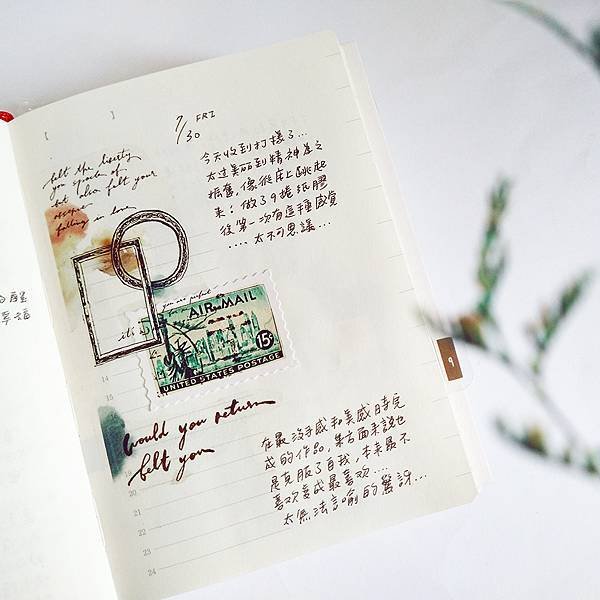 7/30 FRI
今天收到打樣了...
太過美麗到精神為之
振奮像從床上跳起
來；做了9捲紙膠
後第一次有這種感覺
....太不可思議...
felt the liberty
you spoken of
but also felt your
escape
falling in love
you are perfect
it's
AIR MAIL
15¢
UNITED STATES POSTAGE
would you return
felt you
在最沒手感和美感時完
成的作品，某方面來說也
是克服了自我，本來最不
喜歡變成最喜歡....
太無法言喻的驚訝...
9
14
19
20
21
22
23
24